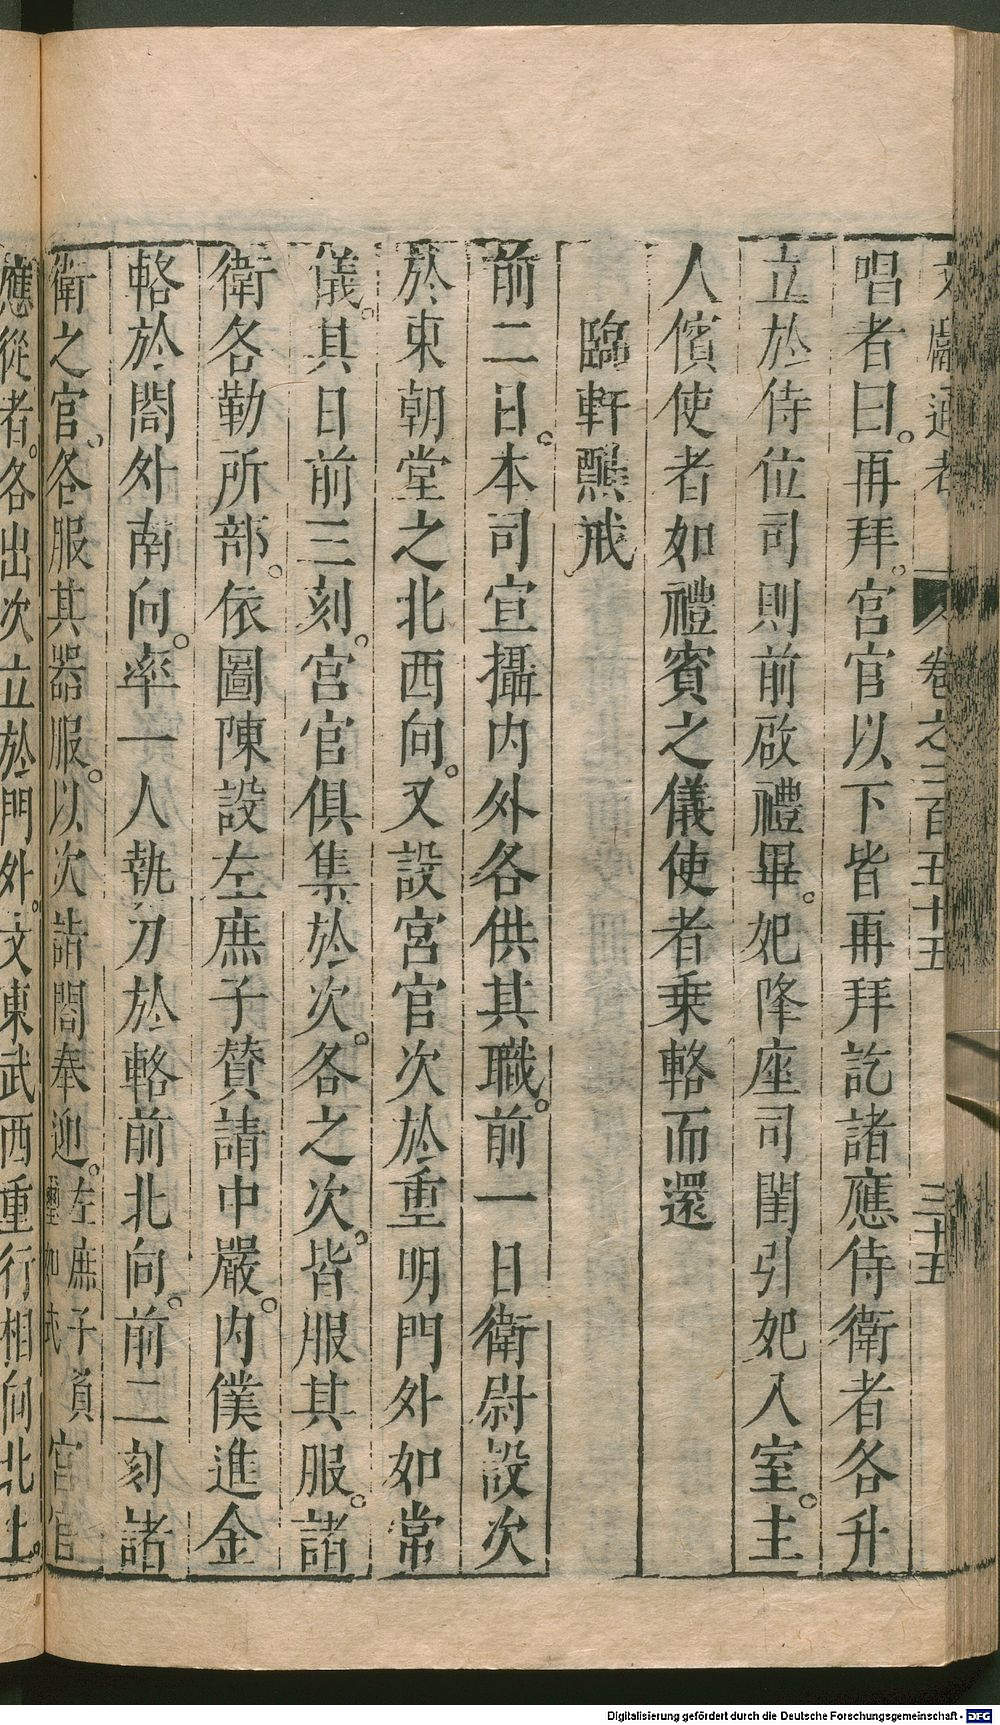 文獻通考 卷之二百五十五 三十五
唱者曰。再拜。宮官以下皆再拜訖諸應侍衛者各升
立於侍位司則前啟禮畢。妃降座司閨引妃入室。主
人儐使者如禮賓之儀使者乘輅而還
臨軒醮戒
前二日。本司宣攝内外各供其職。前一日衛尉設次
於東朝堂之北西向。又設宮官次於重明門外如常
儀。其日前三刻。宮官俱集於次。各之次。皆服其服。諸
衛各勒所部。依圖陳設左庶子贊請中嚴。内僕進金
輅於閤外南向。率一人執刀於輅前北向。前二刻諸
衛之官。各服其器服。以次詣閤奉迎。左庶子負璽如式宮官
應從者。各出次立於門外。文東武西重行相向北上。
Digitalisierung gefördert durch die Deutsche Forschungsgemeinschaft - DFG